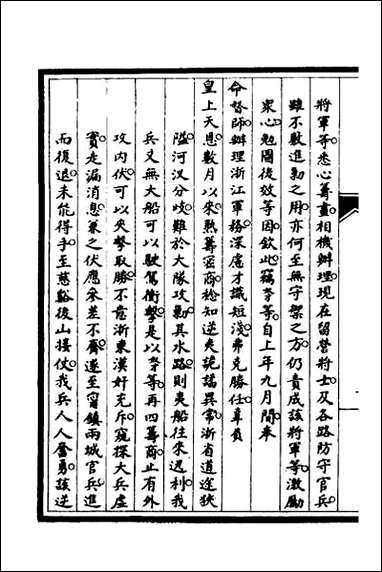 將軍等悉心籌畫相機辦理現在留營將士及各路防守官兵
雖不敷進勦之用亦何至無守禦之方仍責成該將軍等激勵
衆心勉圖後效等因欽此竊奴才等自上年九月間奉
命督師辦理浙江軍務深慮才識短淺弗克勝任辜負
皇上天恩數月以來熟籌密商稔知逆夷詭譎異常浙省道途狹
隘河汊分岐難於大隊攻勦其水路則夷船往來迅利我
兵又無大船可以駛駕衝擊是以奴才等再四籌商止有外
攻內伏可以失勢取勝不意浙東漢奸充斥窺探大兵虛
實走漏消息兼之伏應參差不齊遂至甯鎮兩城官兵進
而復退未能得手至慈谿後山接仗我兵人人奮勇該逆